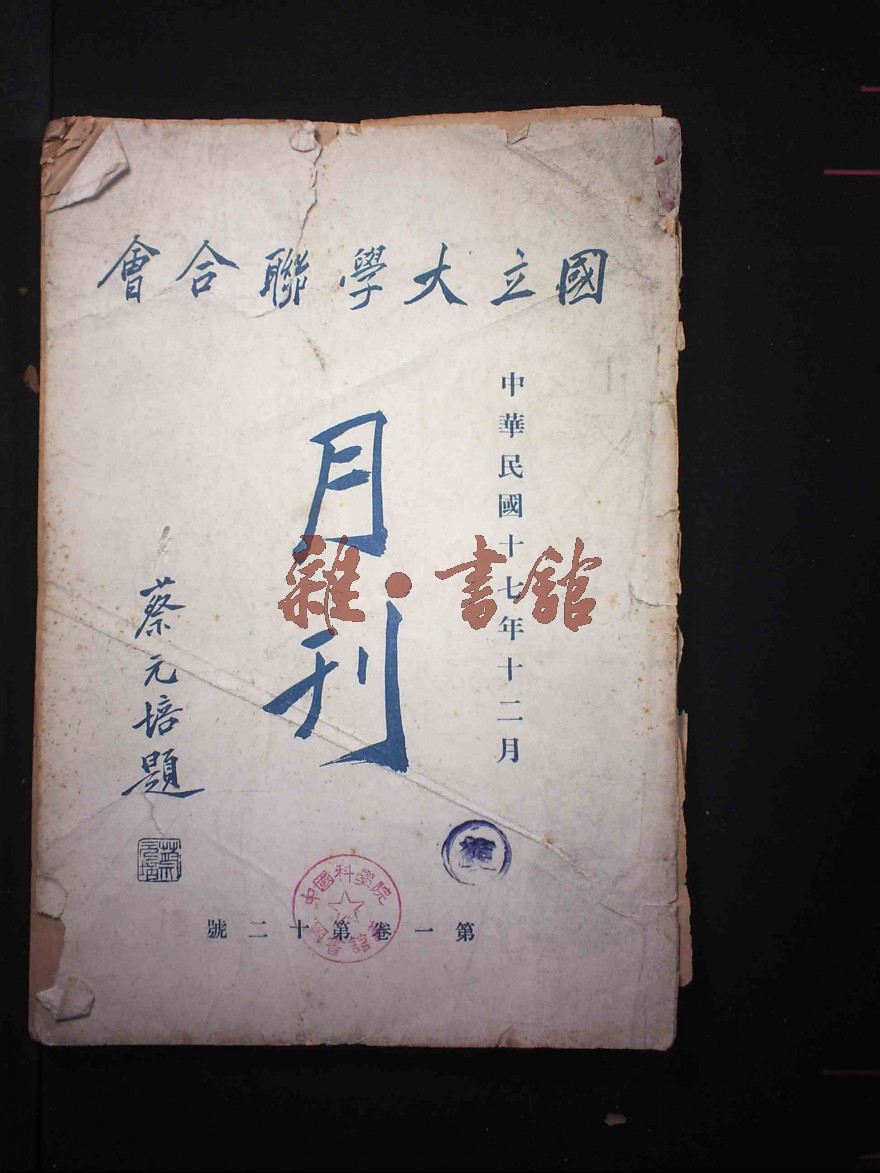 國立大學聯合會
中華民國十七年十二月
月刊
蔡元培題
第一卷第十二號
中國科學院
圖書館
雜·書館